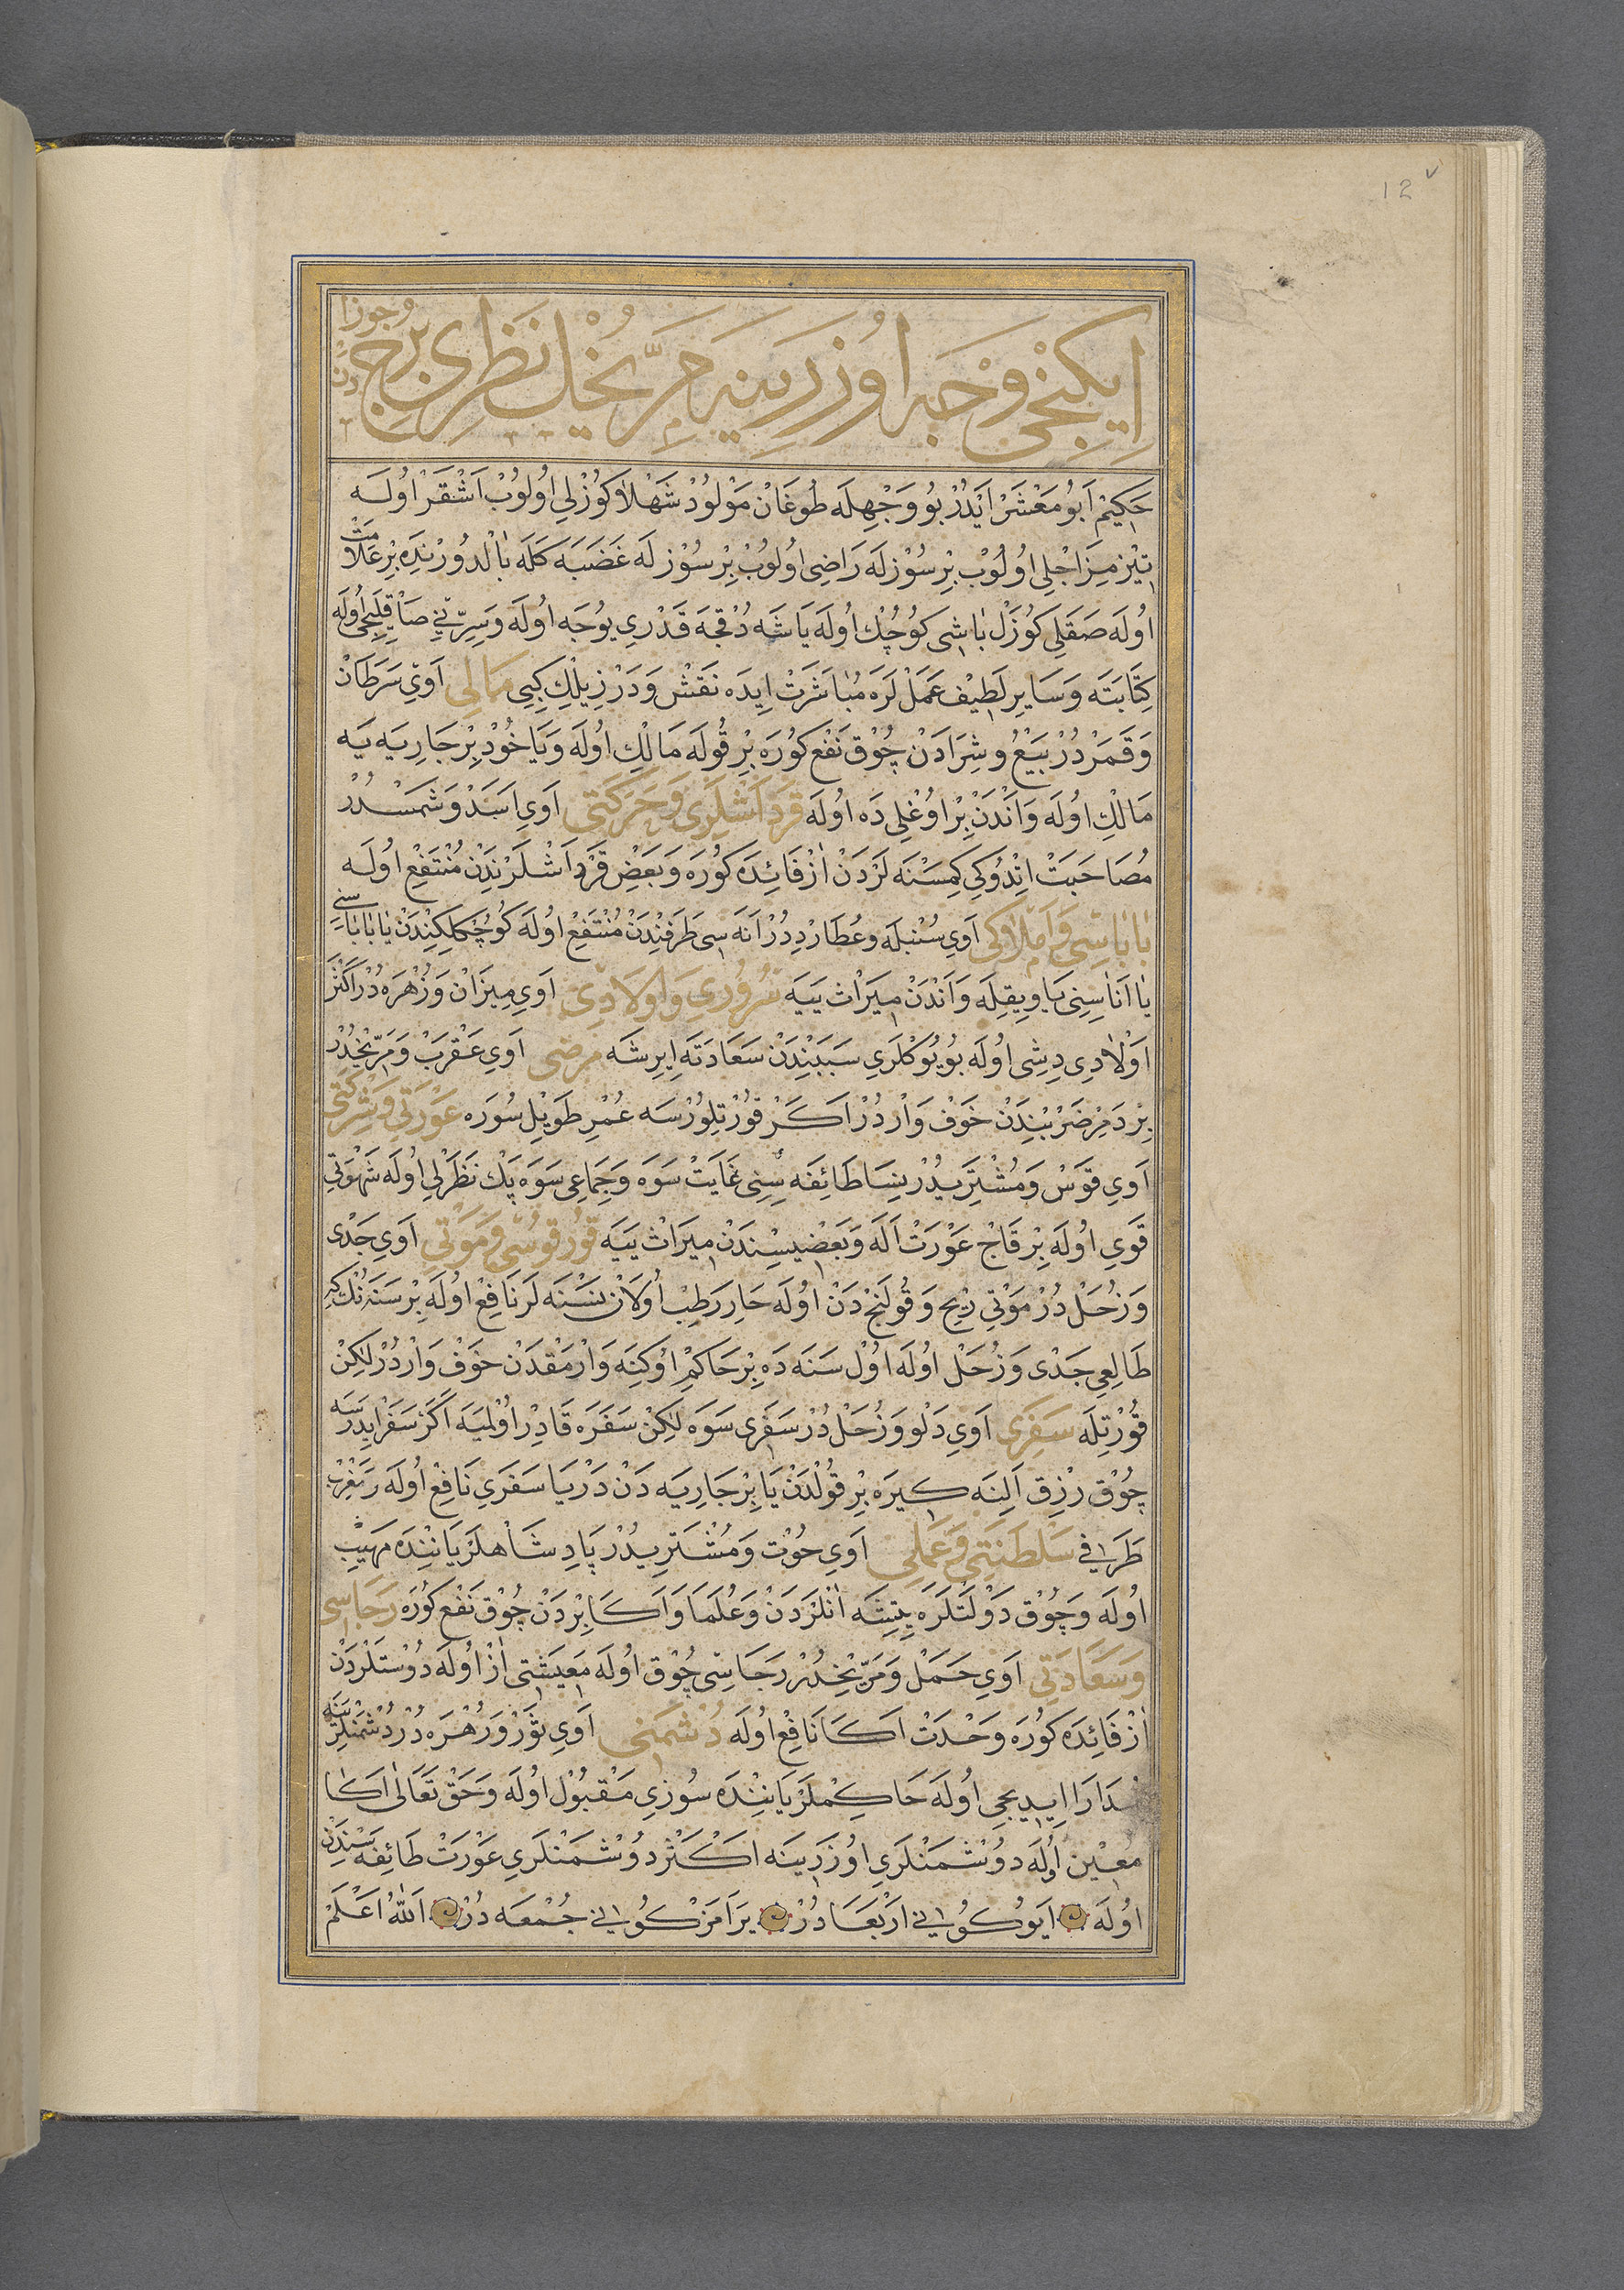 12
ایكِنْجِی وَجْه اُوزَرِینَه مَرِّیخُكْ نَظَرِی بُرْجِ جَوْزَادَنْ
حَكِیْمْ اَبُو مَعْشَرْ اَیْدُرْ بُو وَجْهِلَه طُوغَانْ مَوْلُودْ شَهْلَا كُوْزْلِی اُولُوبْ اَشْقَرْ اُولَه
تِیْزْ مِزَاجْلِی اُولُوبْ بِرْ سُوْزْلَه رَاضِی اُولُوبْ بِرْ سُوْزْلَه غَضَبَه كَلَه بَالْدُورْنِدَه بِرْ عَلَامَتْ
اُولَه صَقَلِی كُوزَلْ بَاشِی كُوچُكْ اُولَه یَاشَه دُقْجَه قَدْرِی یُوجَه اُولَه وَسِرِّنِی صَاقْلَیِجِی اُولَه
كِتَابَتَه وَسَایِرِ لَطِیْف عَمَلْلَرَه مُبَاشَرَتْ اِیدَه نَقْشْ وَدَرْزِیلِكْ كِبِی مَالِی اَوِی سَرَطَانْ
وَقَمَرْدُرْ بَیْعْ وشِرَادَنْ چُوْق نَفْع كُورَه بِرْ قُولَه مَالِكْ اُولَه وَیَا خُوْد بِرْ جَارِیَه یَه
مَالِكْ اُولَه وَاَنْدَنْ بِرْ اُوغْلِی دَه اُولَه قَرَدَاشْلَرِی وَحَرَكَتِی اَوِی اَسَدْ وَشَمْسْدُرْ
مُصَاحَبَتْ اِتْدُوكِی كِمِسْنَه لَرْدَنْ اَزْ فَائِدَه كُورَه وَبَعَضِ قَرْدَاشْلَرِنْدَنْ مُنْتَفِعْ اُولَه
بَابَاسِی وَاَمْلَاكِی اَوِی سُنْبَلَه وعُطَارِدْدُرْ اَنَه سِی طَرَفِنْدَنْ مُنْتَفِعْ اُولَه كُوچُكْلِكِنْدَنْ یَا بَابَاسِنِی
یَا اَنَاسِنِی یَاوِیقِلَه وَاَنْدَنْ مِیرَاثْ یَیَه سُرُورِی وَاَوْلَادِی اَوِی مِیزَانْ وَزُهْرَه دُرْ اَكْثَرْ
اَوْلَادِی دِشِی اُولَه بُویُوكْلَرِی سَبَبِنْدَنْ سَعَادَتَه اِیرِشَه مَرَضِی اَوِی عَقْرَبْ وَمَرِّیخْدُرْ
بِرْ دَمِرْ ضَرْبِنْدَنْ خَوْف وَارْدُرْ اَكَرْ قُوْرْتِلُورْسَه عُمْرِ طَوِیْل سُورَه عَوْرَتِی وَشِرْكَتِی
اَوِی قَوَسْ وَمُشْتَرِیدُرْ نِسَا طَائِفَه سِنِی غَایَتْ سَوَه وَجِمَاعِی سَوَه پَكْ نَظَرْلِی اُولَه شَهْوَتِی
قَوِی اُولَه بِرْ قَاجْ عَوْرَتْ اَلَه وَبَعْضِیسِنْدَنْ مِیرَاثْ یَیَه قُورْقُوسِی وَمَوْتِی اَوِی جَدْی
وَزُحَلْ دُرْ مَوْتِی رِیح وَقُولَنْجْ دَنْ اُولَه حَارِ رَطِبْ اُولَانْ نَسْنَه لَرْ نَافِعْ اُولَه بِرْ سَنَه نُنْك كِه
طَالِعِی جَدْی وَزُحَلْ اُولَه اُوْلْ سَنَه دَه بِرْ حَاكِمْ اُوكِنَه وَارْمَقْدَنْ خَوْف وَارْدُرْ لٰكِنْ
قُوْرْتِلَه سَفَرِی اَوِی دَلْو وَزُحَلْ دُرْ سَفَرِی سَوَه لٰكِنْ سَفَرَه قَادِرْ اُوْلمیَه اَكَرْ سَفَرْ اِیدَرْسَه
چُوْق رِزْق اَلِنَه كِیرَه بِرْ قُوْلْدَنْ یَا بِرْ جَارِیَه دَنْ دَرْیَا سَفَرِی نَافِعْ اُولَه وَمَغْرِبْ
طَرَفِی سَلْطَنَتِی وَعَمَلِی اَوِی حُوْت وَمُشْتَرِیدُرْ پَادِشَاهْلَرْ یَانِنْدَه مَهِیْب
اُولَه وَچُوْق دَوْلَتْلَرَه یِتِشَه اَنْلَرْدَنْ وَعُلَمَا وَاَكَابِرْدَنْ چُوْق نَفْع كُورَه رَجَاسِی
وَسَعَادَتِی اَوِی حَمَلْ وَمَرِّیْخْدُرْ رَجَاسِی چُوْق اُولَه مَعِیشَتِی اَزْ اُولَه دُوسْتلَرْدَنْ
اَزْ فَائِدَه كُورَه وَحْدَتْ اَكَا نَافِعْ اُولَه دُشْمَنِی اَوِی ثَوْرْ وَزُهْرَه دُرْ دُشْمَنْلَرِینَه
مُدَارَا اِیدِیجِی اُولَه حَاكِمْلَرْ یَانِنْدَه سُوزِی مَقْبُولْ اُولَه وَحَقْ تَعَالٰی اَكَا
مُعِیْن اُولَه دُوشْمَنْلَرِی اُوزَرِینَه اَكْثَرْ دُوشْمَنْلَرِی عَوْرَتْ طَائِفَه سِنْدَنْ
اُولَه اَیُو كُونِی اَرْبَعَا دُرْ یَرَامَزْ كُونِی جُمْعَه دُرْ اَللّٰهُ اَعْلَمْ